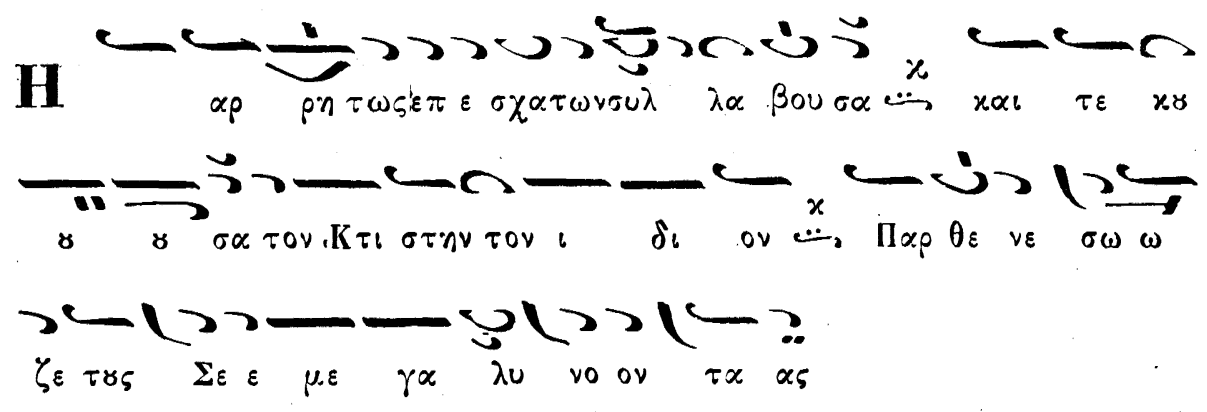 Η αρ ρη τως επ ε σχατωνσυλ λα βου σα και τε κȣ
ȣ ȣ σα τον Κτι στην τον ι δι ον Παρ θε νε σω ω
ζε τȣς Σε ε με γα λυ νο ον τα ας